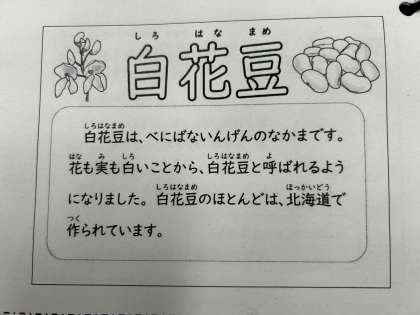 しろ はな まめ
白花豆
しろはなまめ
白花豆は、べにばないんげんのなかまです。
はな み しろ しろはなまめ よ
花も実も白いことから、白花豆と呼ばれるよう
しろはなまめ ほっかいどう
になりました。白花豆のほとんどは、北海道で
つく
作られています。